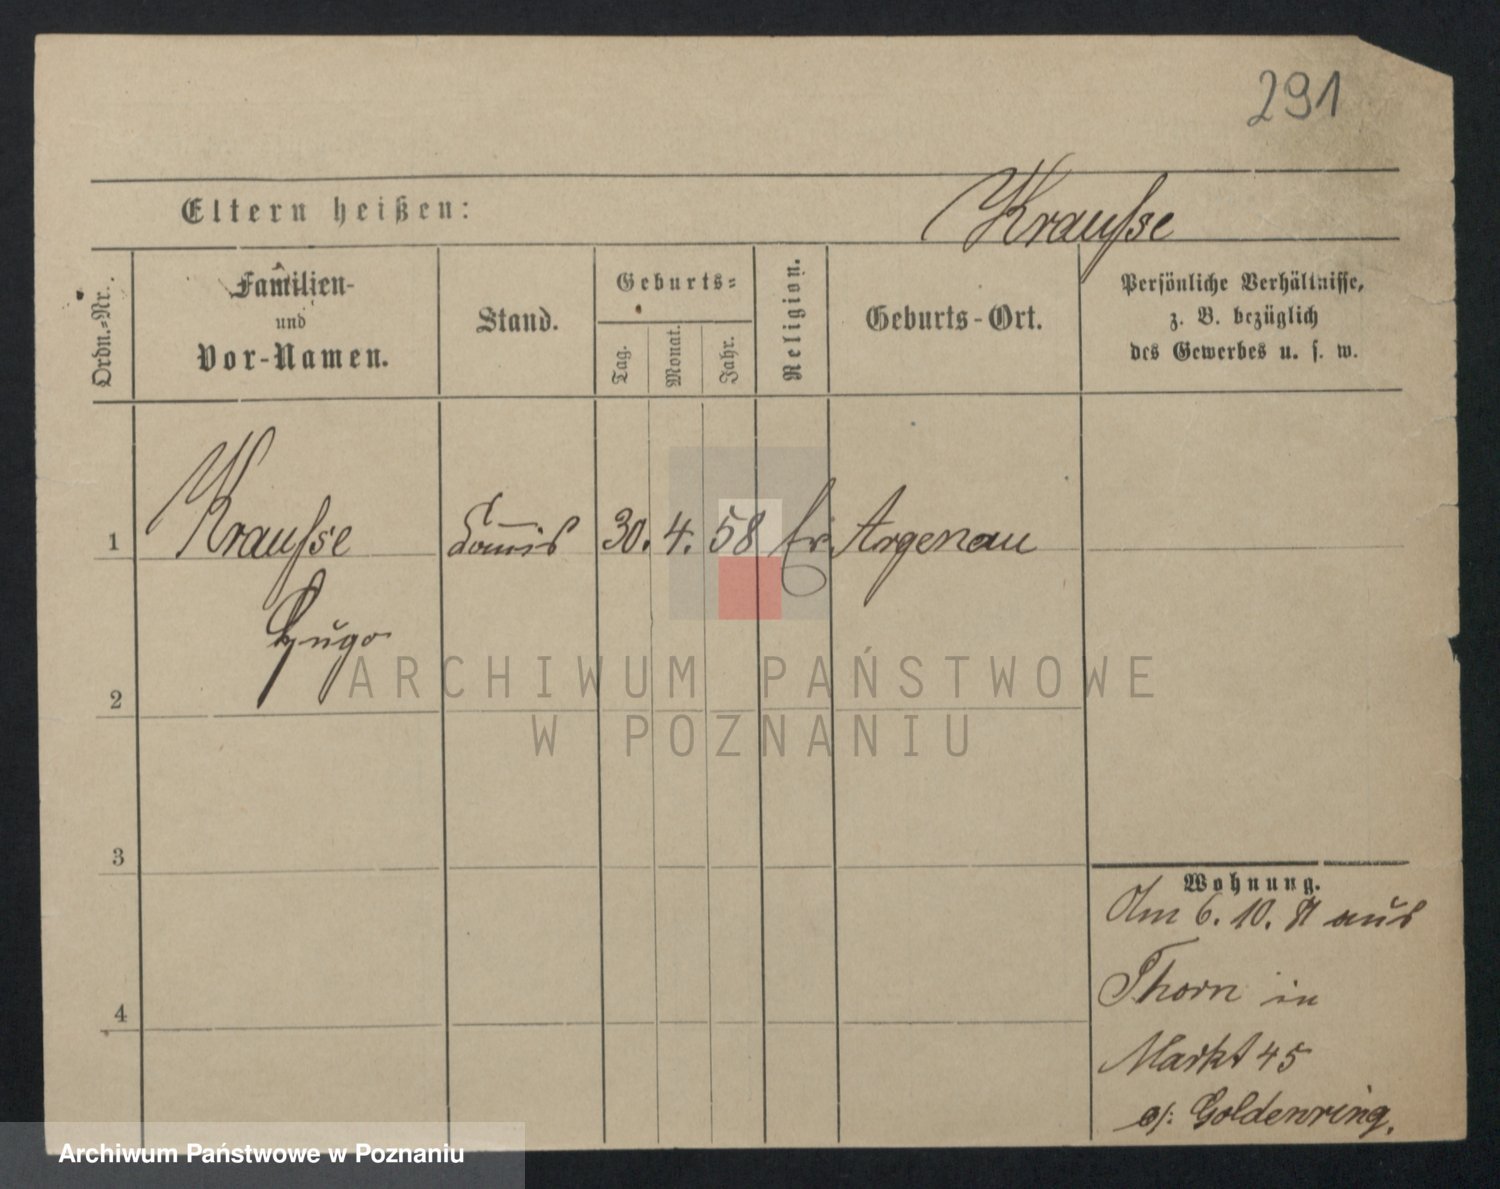 291
Eltern heißen:
Kraufse
Ordn.-Nr.
Familien-
und
Vor-Namen.
Stand.
Geburts-
Tag.
Monat.
Jahr.
Religion.
Geburts-Ort.
Persönliche Verhältnisse,
z. B. bezüglich
des Gewerbes u. s. w.
1
Kraufse
30. 4. 58
Argenau
Hugo
2
3
4
Wohnung.
Am 6. 10. aus
Thorn in
Markt 45
Goldenring.
ARCHIWUM PAŃSTWOWE
W POZNANIU
Archiwum Państwowe w Poznaniu